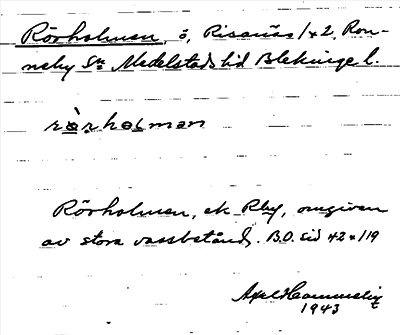 Rörholmen, ö, Risanäs 1+2, Ron-
neby Sn Medelstads hd Blekinge l.
rörholman
Rörholmen, ek Rby, omgiven
av stora vassbestånd. B.O. sid 42 + 119
Axel
1943